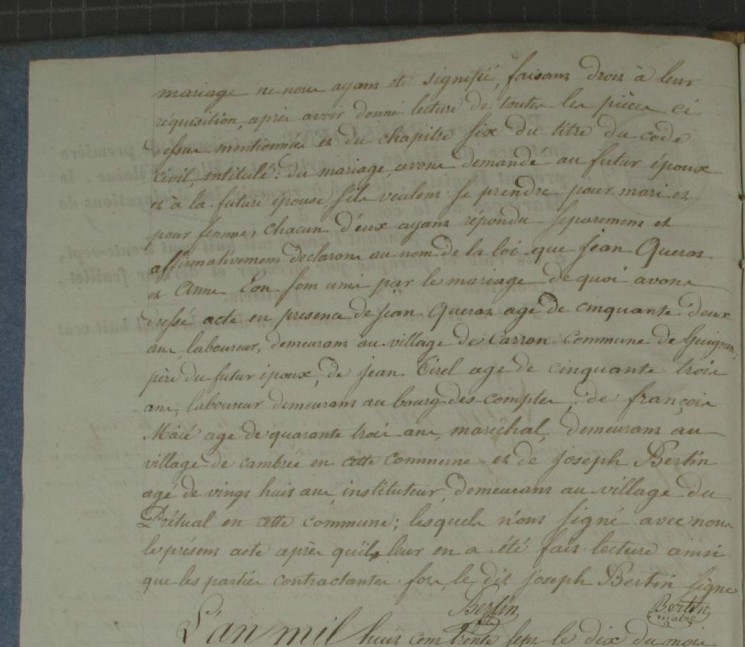 mariage ne nous ayant été signifié, faisant droit à leur
réquisition, après avoir donné lecture de toutes les pièces ci
dessus mentionnées et du chapitre six du titre du code
civil, intitulé: du mariage, avons demandé au futur époux
et à la future épouse s'ils veulent se prendre pour mari et
pour femme, chacun d'eux ayant répondu séparement et
affirmativement declarons au nom de la loi que jean Queran
et Anne sont unis par le mariage de quoi avons
dressé acte en présence de jean Queran agé de cinquante deux
ans laboureur, demeurant au village de Carran commune de Guignen,
père du futur époux, de jean Tirel agé de cinquante trois
ans, laboureur demeurant au bourg des comptes, de françois
Macé agé de quarante trois ans, maréchal, demeurant au
village de cambrée en cette commune et de Joseph Bertin
agé de vingt huit ans, instituteur, demeurant au village du
en cette commune; lesquels n'ont signé avec nous
le présent acte après qu'il leur en a été fait lecture ainsi
que les parties contractantes fors le dit Joseph Bertin signe
Bertin
Bertin
maire
L'an mil huit cent trente sept le dix du mois